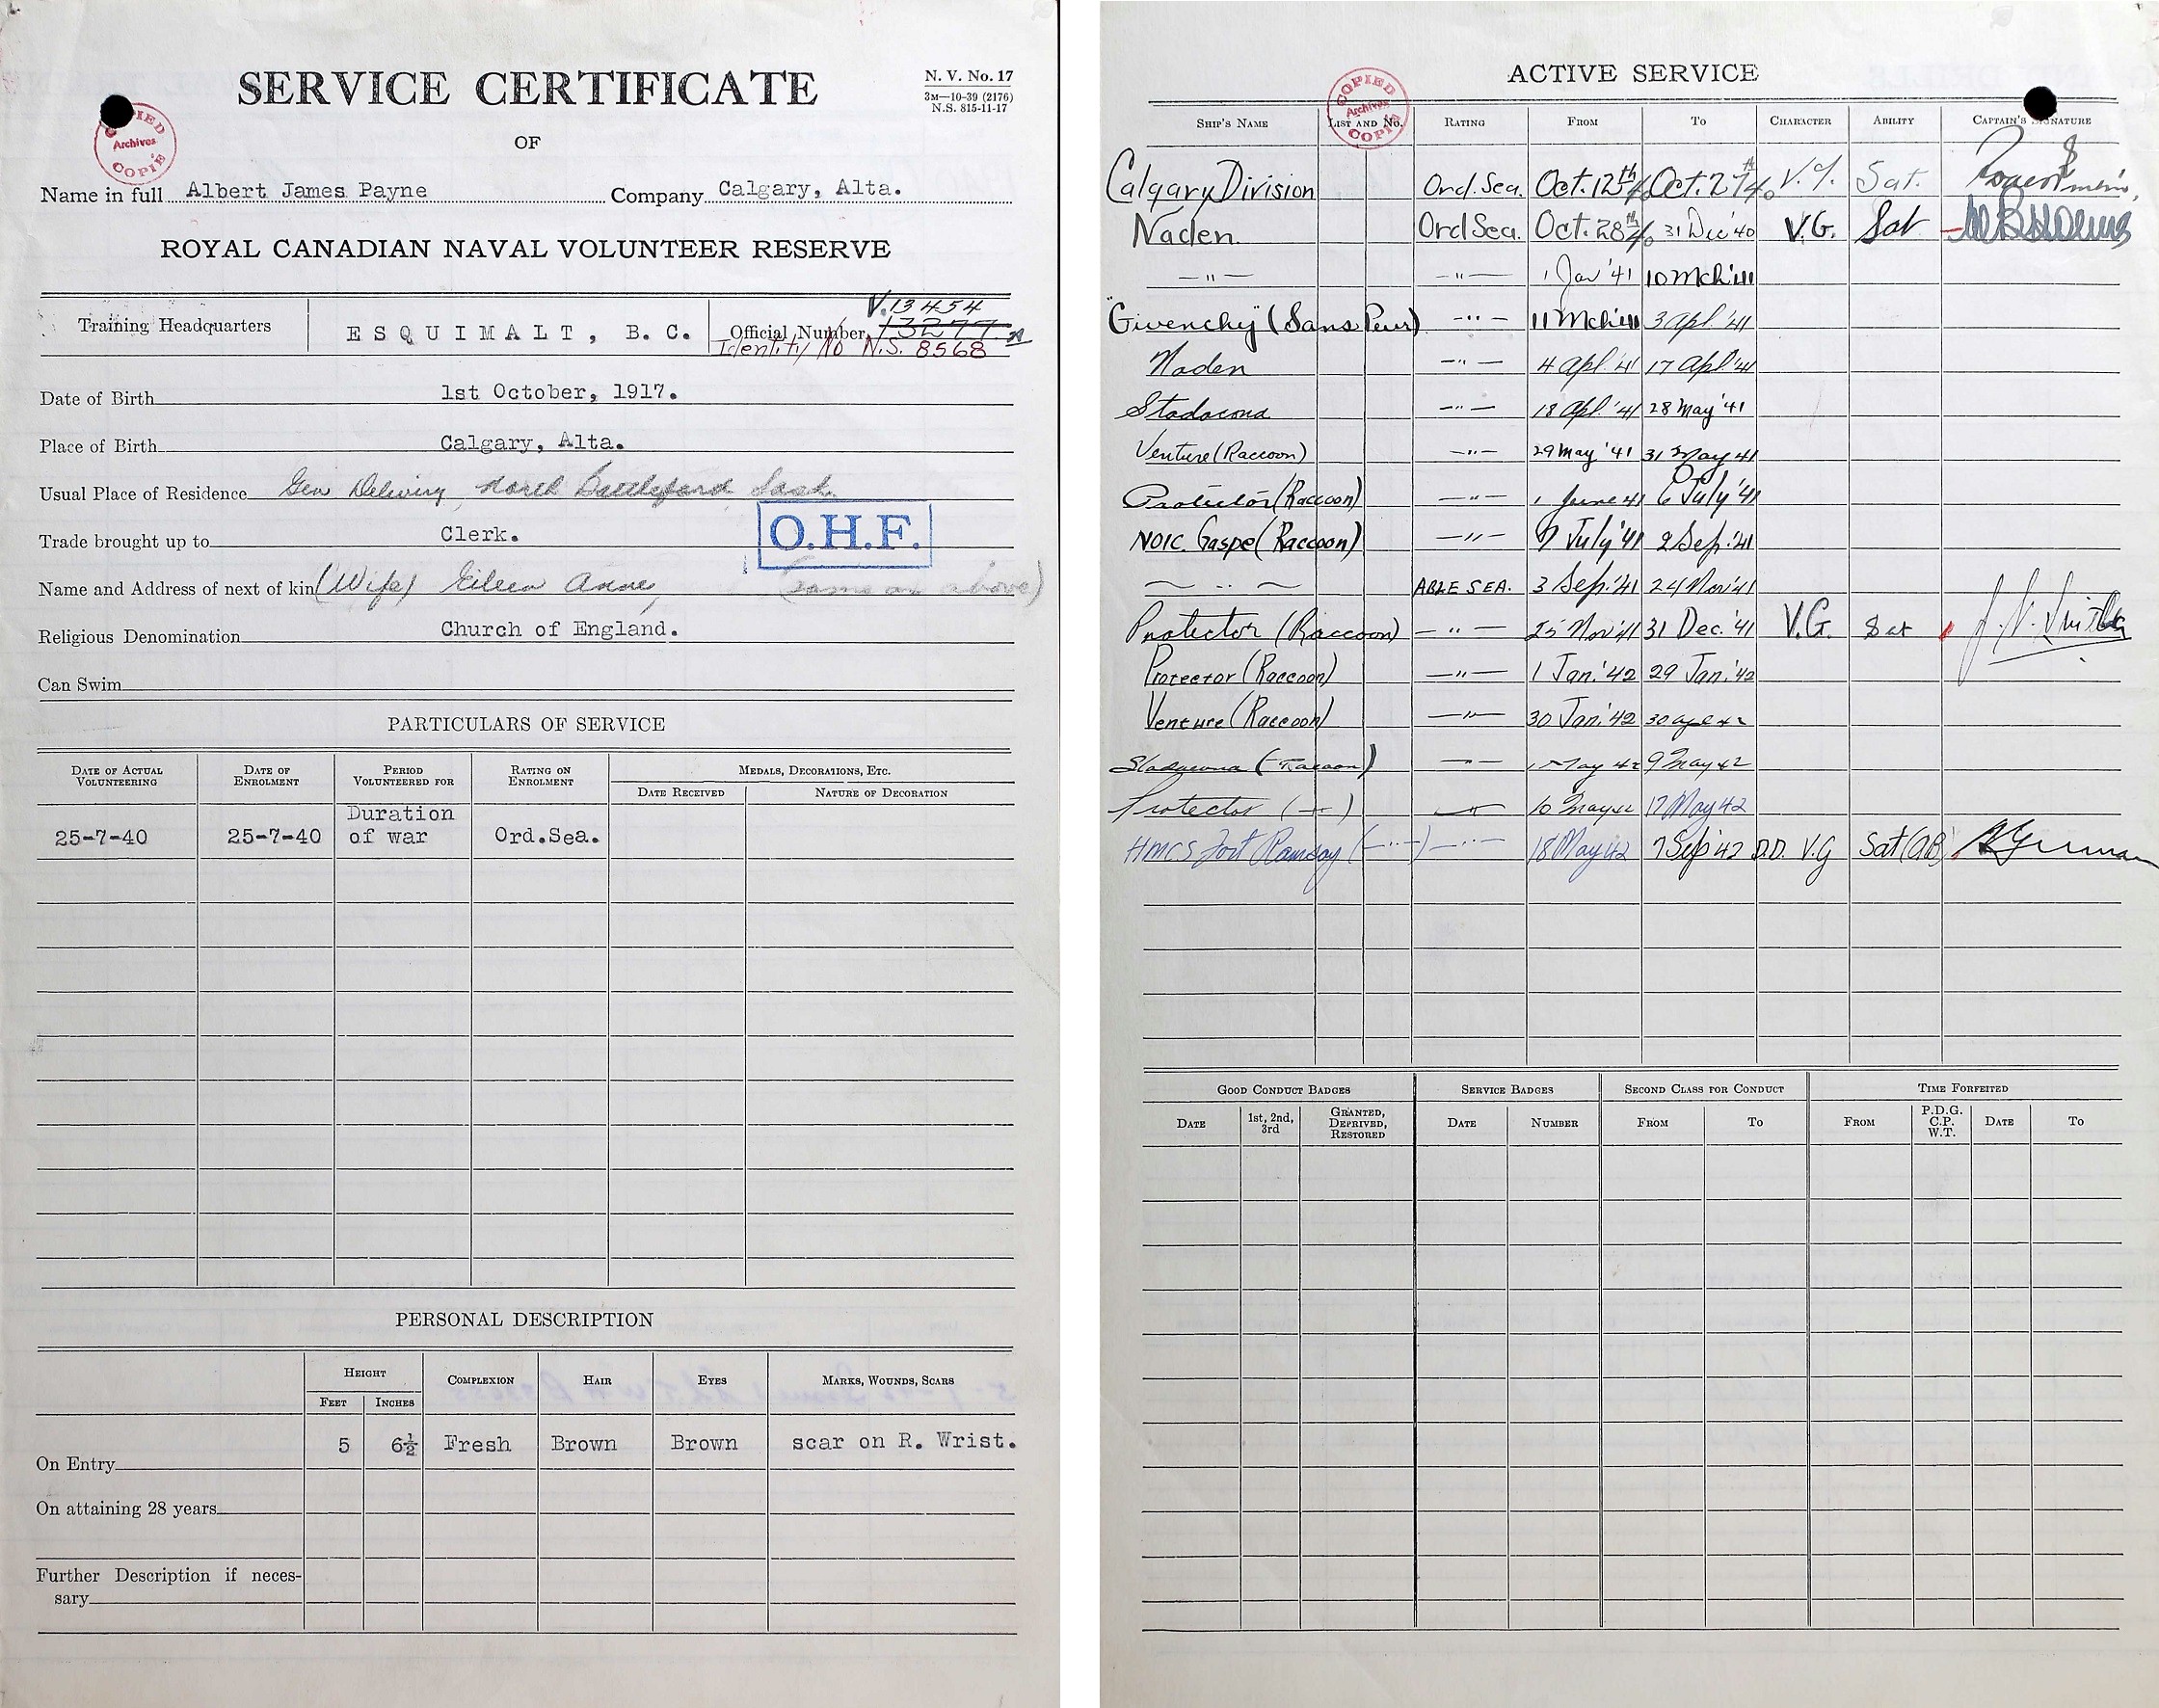 SERVICE CERTIFICATE
N. V. No. 17
3M—10-39 (2176)
N.S. 815-11-17
COPIED
Archives
COPIÉ
OF
Name in full Albert James Payne Company Calgary, Alta.
ROYAL CANADIAN NAVAL VOLUNTEER RESERVE
V.13454
Training Headquarters ESQUIMALT, B. C. Official Number 13277
Identity No N.S. 8568
Date of Birth 1st October, 1917.
Place of Birth Calgary, Alta.
Usual Place of Residence Gen Delivery, North Battleford Sask.
O.H.F.
Trade brought up to Clerk.
Name and Address of next of kin (Wife) Eileen Anne, (same as above)
Religious Denomination Church of England.
Can Swim
PARTICULARS OF SERVICE
DATE OF ACTUAL VOLUNTEERING DATE OF ENROLMENT PERIOD VOLUNTEERED FOR RATING ON ENROLMENT MEDALS, DECORATIONS, ETC.
DATE RECEIVED NATURE OF DECORATION
25-7-40 25-7-40 Duration of war Ord.Sea.
PERSONAL DESCRIPTION
HEIGHT COMPLEXION HAIR EYES MARKS, WOUNDS, SCARS
FEET INCHES
On Entry 5 6½ Fresh Brown Brown scar on R. Wrist.
On attaining 28 years
Further Description if neces-
sary
ACTIVE SERVICE
COPIED
Archives
COPIÉ
SHIP'S NAME LIST AND NO. RATING FROM TO CHARACTER ABILITY CAPTAIN'S SIGNATURE
Calgary Division Ord. Sea. Oct. 12th/40 Oct. 27th/40 V.G. Sat.
Naden Ord Sea. Oct. 28th/40 31 Dec '40 V.G. Sat
—"— —"— 1 Jan '41 10 Mch '41
"Givenchy" (Sans Peur) —"— 11 Mch '41 3 Apl. '41
Naden —"— 4 Apl. '41 17 Apl. '41
Stadacona —"— 18 Apl. '41 28 May '41
Venture (Raccoon) —"— 29 May '41 31 May 41
Protector (Raccoon) —"— 1 June 41 6 July '41
NOIC. Gaspe (Raccoon) —"— 7 July '41 2 Sep. '41
— " — ABLE SEA. 3 Sep. '41 24 Nov '41
Protector (Raccoon) —"— 25 Nov '41 31 Dec. '41 V.G. Sat
Protector (Raccoon) —"— 1 Jan. '42 29 Jan. '42
Venture (Raccoon) —"— 30 Jan. '42 30 apl 42
Stadacona (Racoon) —"— 1 May 42 9 May 42
Protector (—"—) —"— 10 May 42 17 May 42
HMCS Fort Ramsay (—"—) —"— 18 May 42 7 Sep '42 D.D. V.G Sat (AB)
GOOD CONDUCT BADGES SERVICE BADGES SECOND CLASS FOR CONDUCT TIME FORFEITED
DATE 1st, 2nd, 3rd GRANTED, DEPRIVED, RESTORED DATE NUMBER FROM TO FROM P.D.G. C.P. W.T. DATE TO